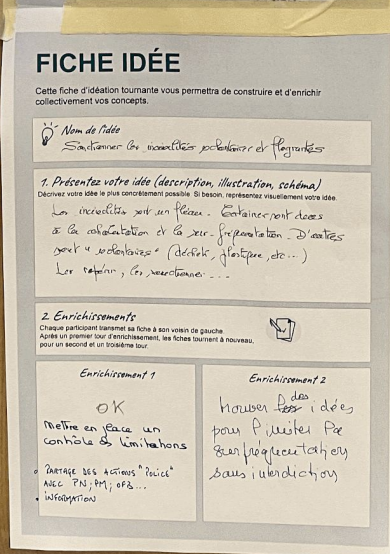 FICHE IDÉE
Cette fiche d'idéation tournante vous permettra de construire et d'enrichir
collectivement vos concepts.
Nom de l'idée
Sanctionner les incivilités volontaires et flagrantes
1. Présentez votre idée (description, illustration, schéma)
Décrivez votre idée le plus concrètement possible. Si besoin, représentez visuellement votre idée.
Les incivilités sont un fléau. Certaines sont dues
à la cohabitation et la sur-fréquentation. D'autres
sont "volontaires" (déchets, plastique, etc...)
Les repérer, les sanctionner...
2. Enrichissements
Chaque participant transmet sa fiche à son voisin de gauche.
Après un premier tour d'enrichissement, les fiches tournent à nouveau,
pour un second et un troisième tour.
Enrichissement 1
OK
Mettre en place un
contrôle des limitations
PARTAGE DES ACTIONS "POLICE"
AVEC PN; PM; OFB...
INFORMATION
Enrichissement 2
trouver des idées
pour limiter la
surfréquentation
sans interdiction